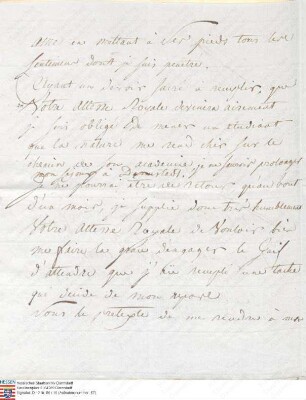 Altesse en mettant à ses pieds tous les
sentimens dont je suis
Ayant un devoir sacré à remplir, que
Votre Altesse Royale devinera aisement
je suis obligé de mener un etudiant
que la nature me rend cher sur le
de son academie, je ne saurois prolonger
mon séjour à Darmstadt,
je ne pourrai être de retour, qu'au bout
d'un mois, je supplie donc très humblement
Votre Altesse Royale de Vouloir bien
me faire la grace d'engager le
d'attendre que j'aie rempli une tache
qui decide de mon
sous le pretexte de me rendre à mon
HESSEN
Hessisches Staatsarchiv Darmstadt